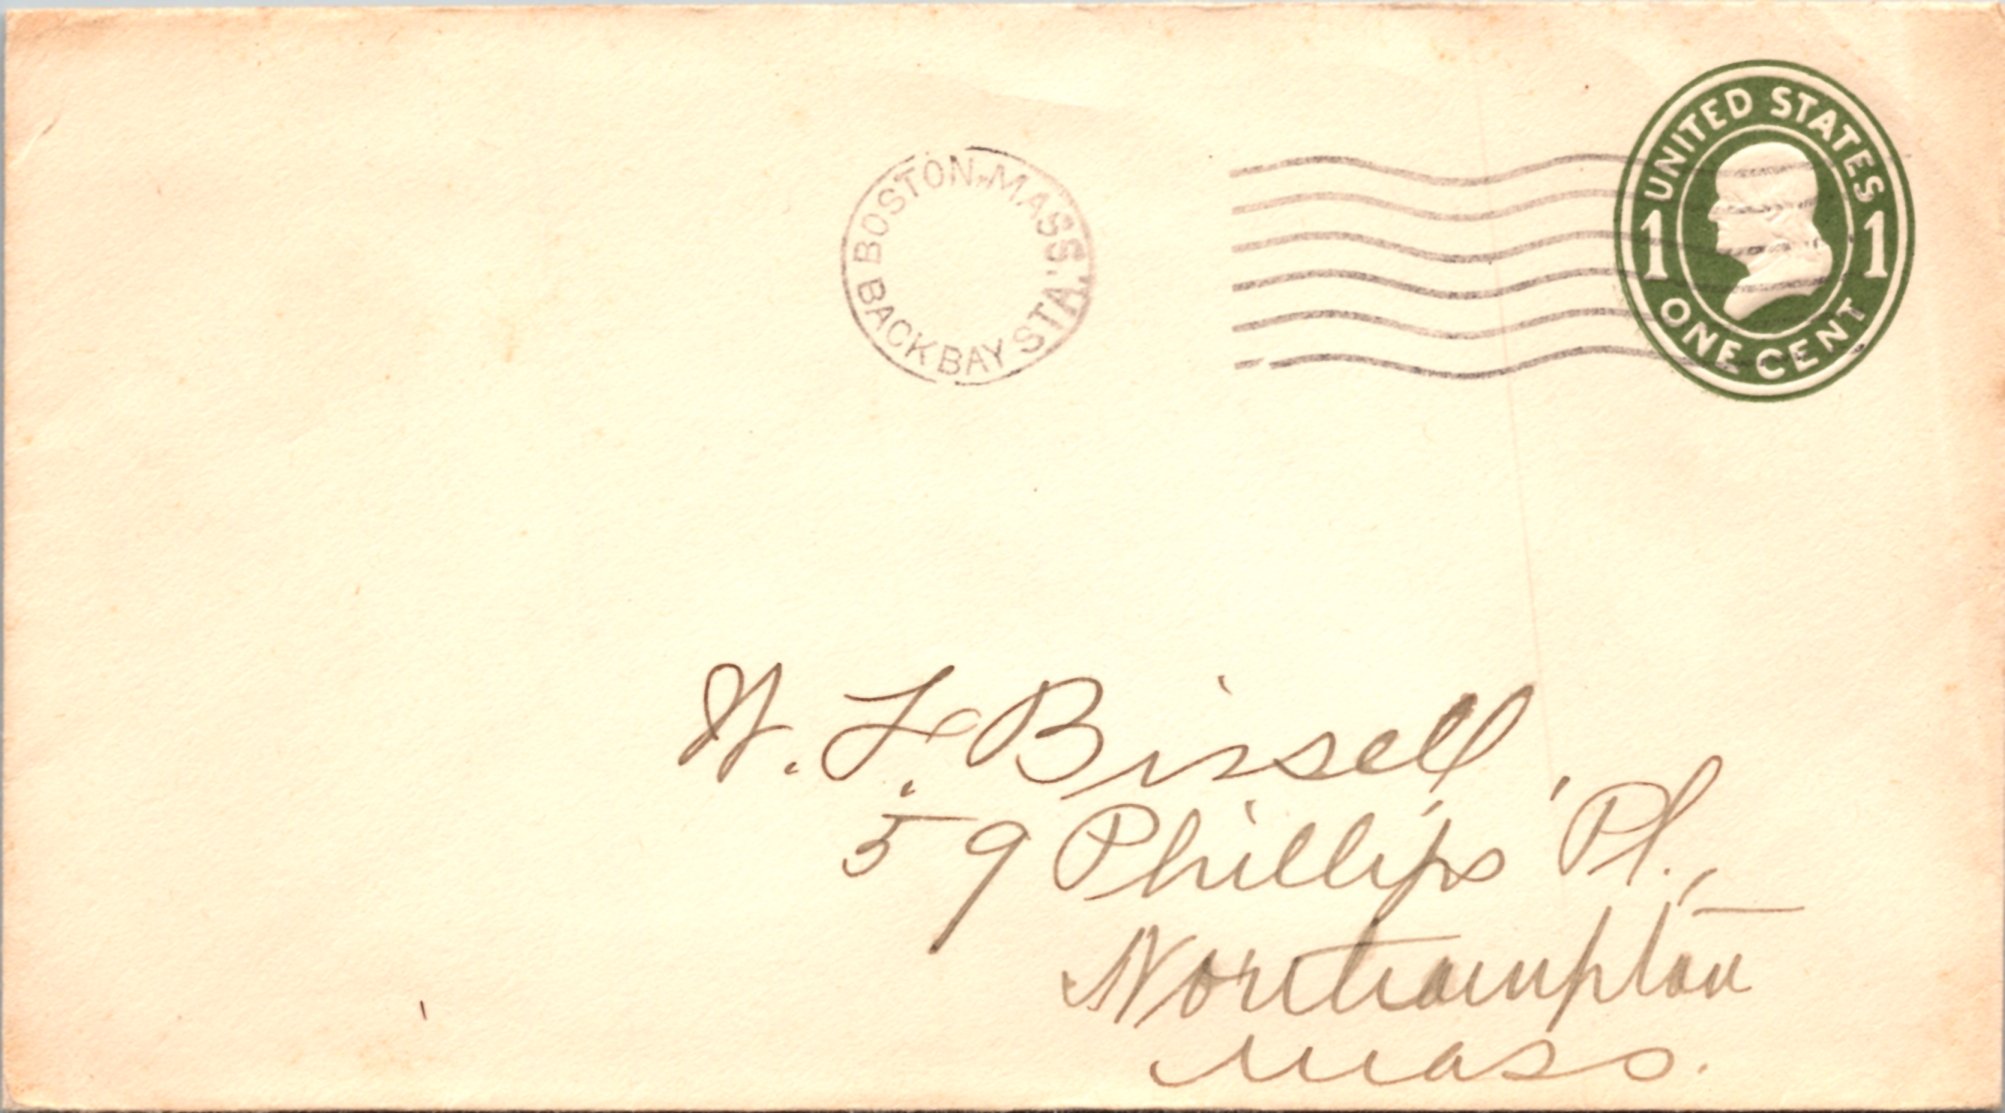 BOSTON, MASS.
BACK BAY STA.
UNITED STATES
1 1
ONE CENT
W. F. Bissell
59 Phillips Pl.,
Northampton
Mass.